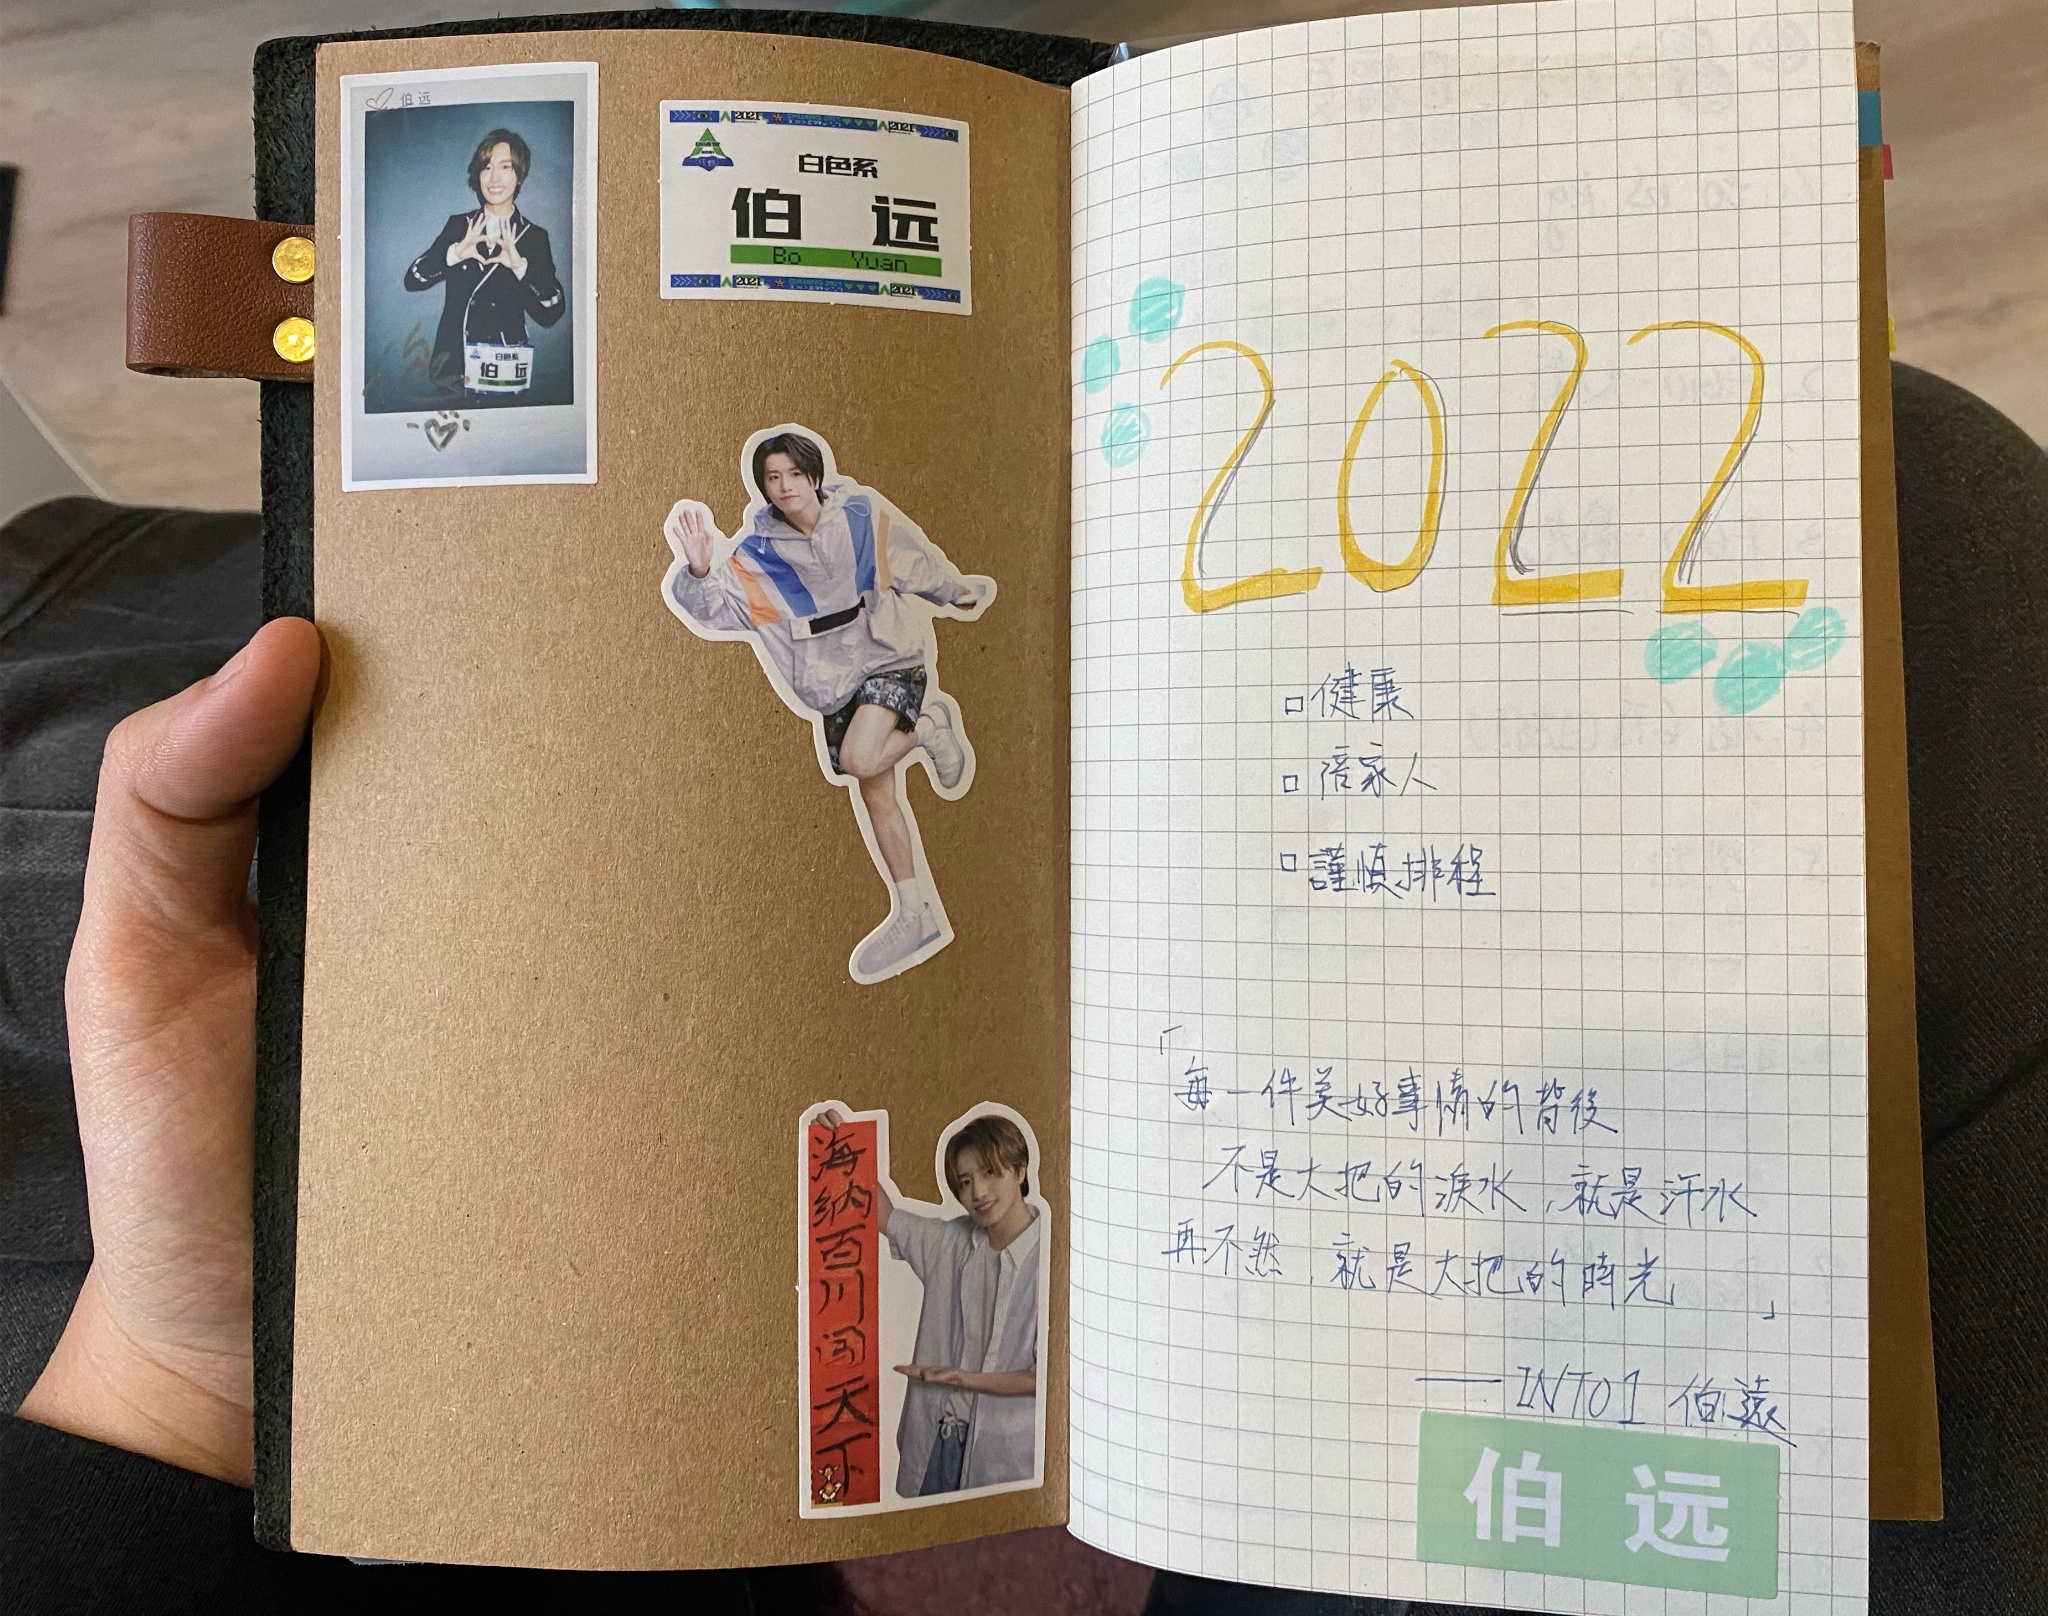 伯远
2021 2021
白色系
伯 远
Bo Yuan
2021 CHUANG 2021 2021
白色系
伯 远
海纳百川闯天下
2022
□健康
□陪家人
□謹慎排程
「
每一件美好事情的背後
不是大把的淚水,就是汗水
再不然,就是大把的時光」
——INTO1 伯遠
伯 远